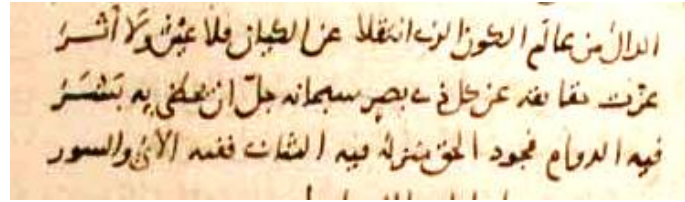 الدال من عالم الكون الذي انتقلا عن الكيان فلا عين ولا أثر
عزت حقايقه عن كل ذي بصر سبحانه جل ان يحظى به بشر
فيه الدوام فجود الحق منزله فيه المثاني ففيه الآي والسور